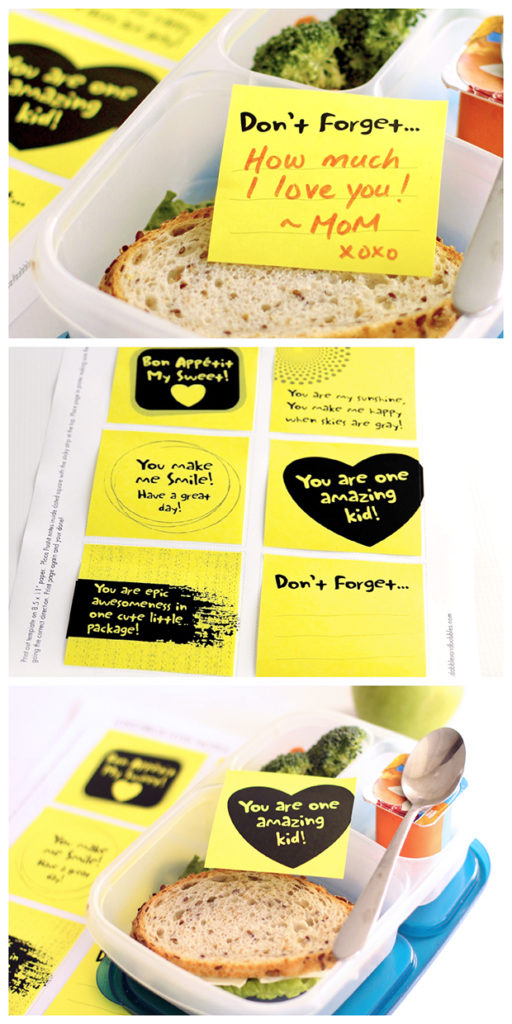 You are one
amazing
kid!
Don't Forget...
How much
I love you!
~ MOM
xoxo
Bon Appétit
My Sweet!
You are my sunshine,
You make me happy
when skies are gray!
You make
me Smile!
Have a great
day!
You are one
amazing
kid!
You are epic
awesomeness in
one cute little
package!
Don't Forget...
Print out template on 8.5 x 11" paper. Place Postit notes inside dotted square with the sticky strip at the top. Place page in printer making sure its
going the correct direction. Print page again and your done!
dabblesandbabbles.com
Bon Appétit
My Sweet!
You make
me Smile!
Have a great
day!
You are one
amazing
kid!